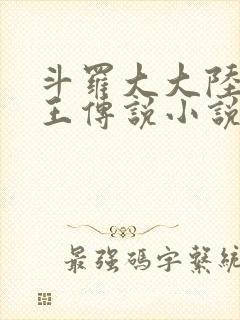 斗羅大大陸
王傳說小說
最強碼字繫統